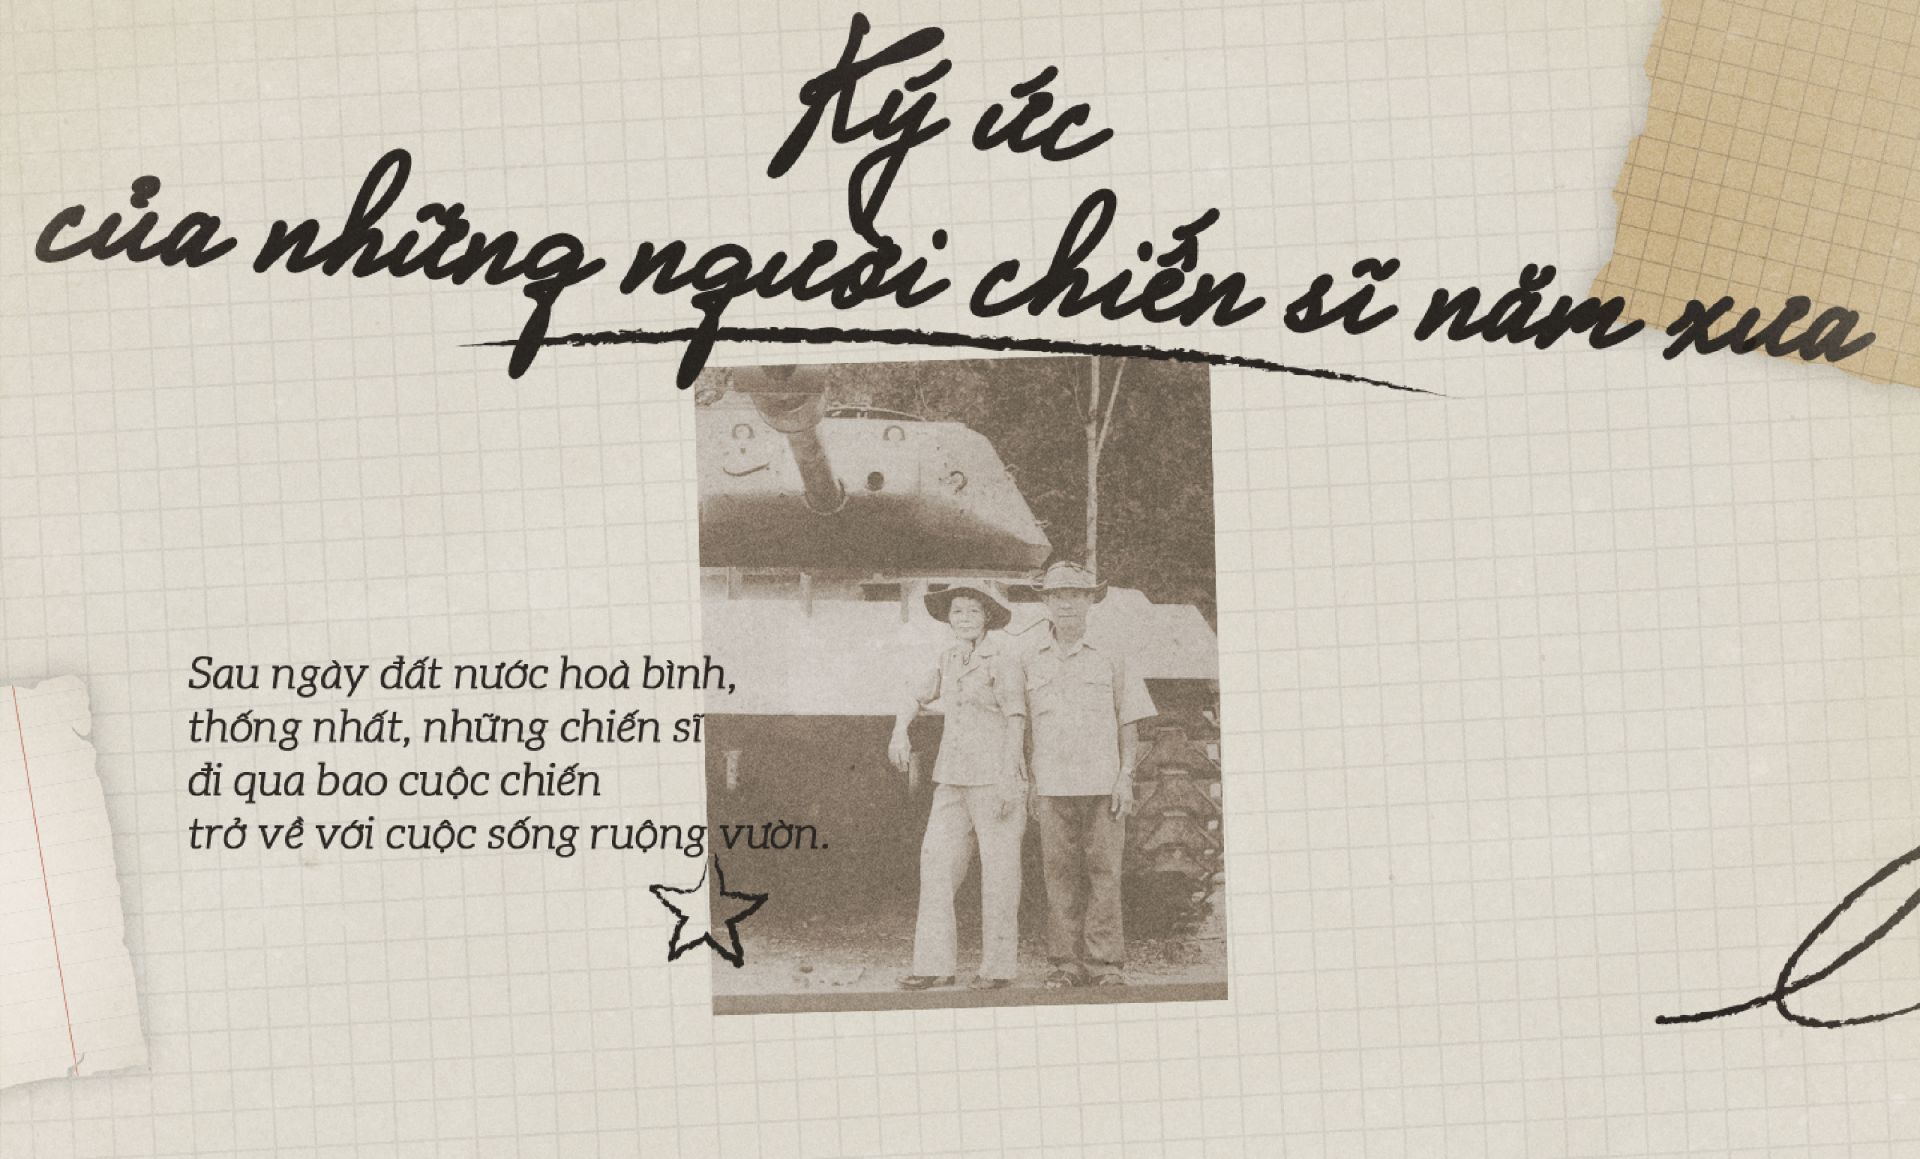 Ký ức
của những người chiến sĩ năm xưa
Sau ngày đất nước hoà bình,
thống nhất, những chiến sĩ
đi qua bao cuộc chiến
trở về với cuộc sống ruộng vườn.